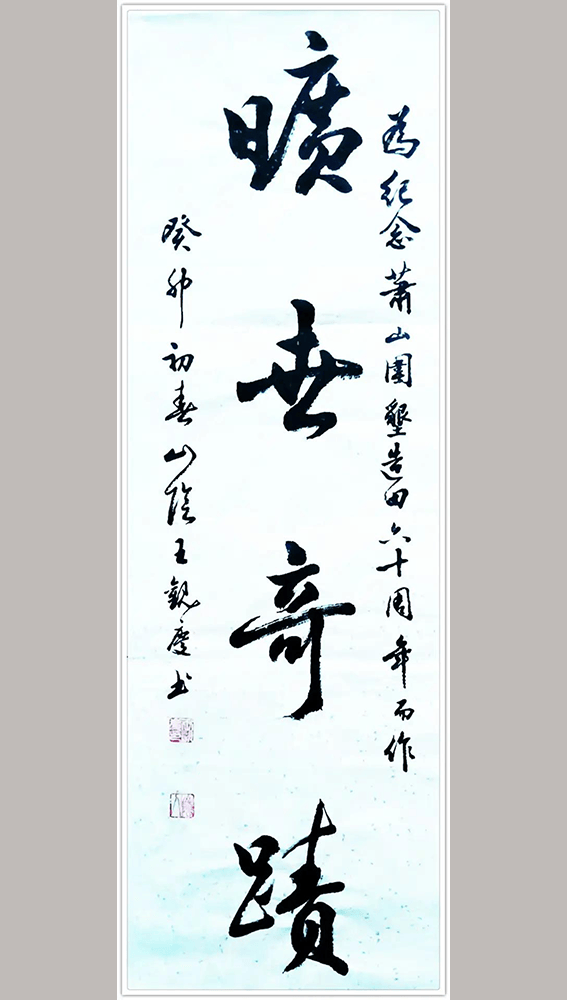 為紀念蕭山圍墾造田六十周年而作
曠世奇蹟
癸卯初春山陰王觀慶书